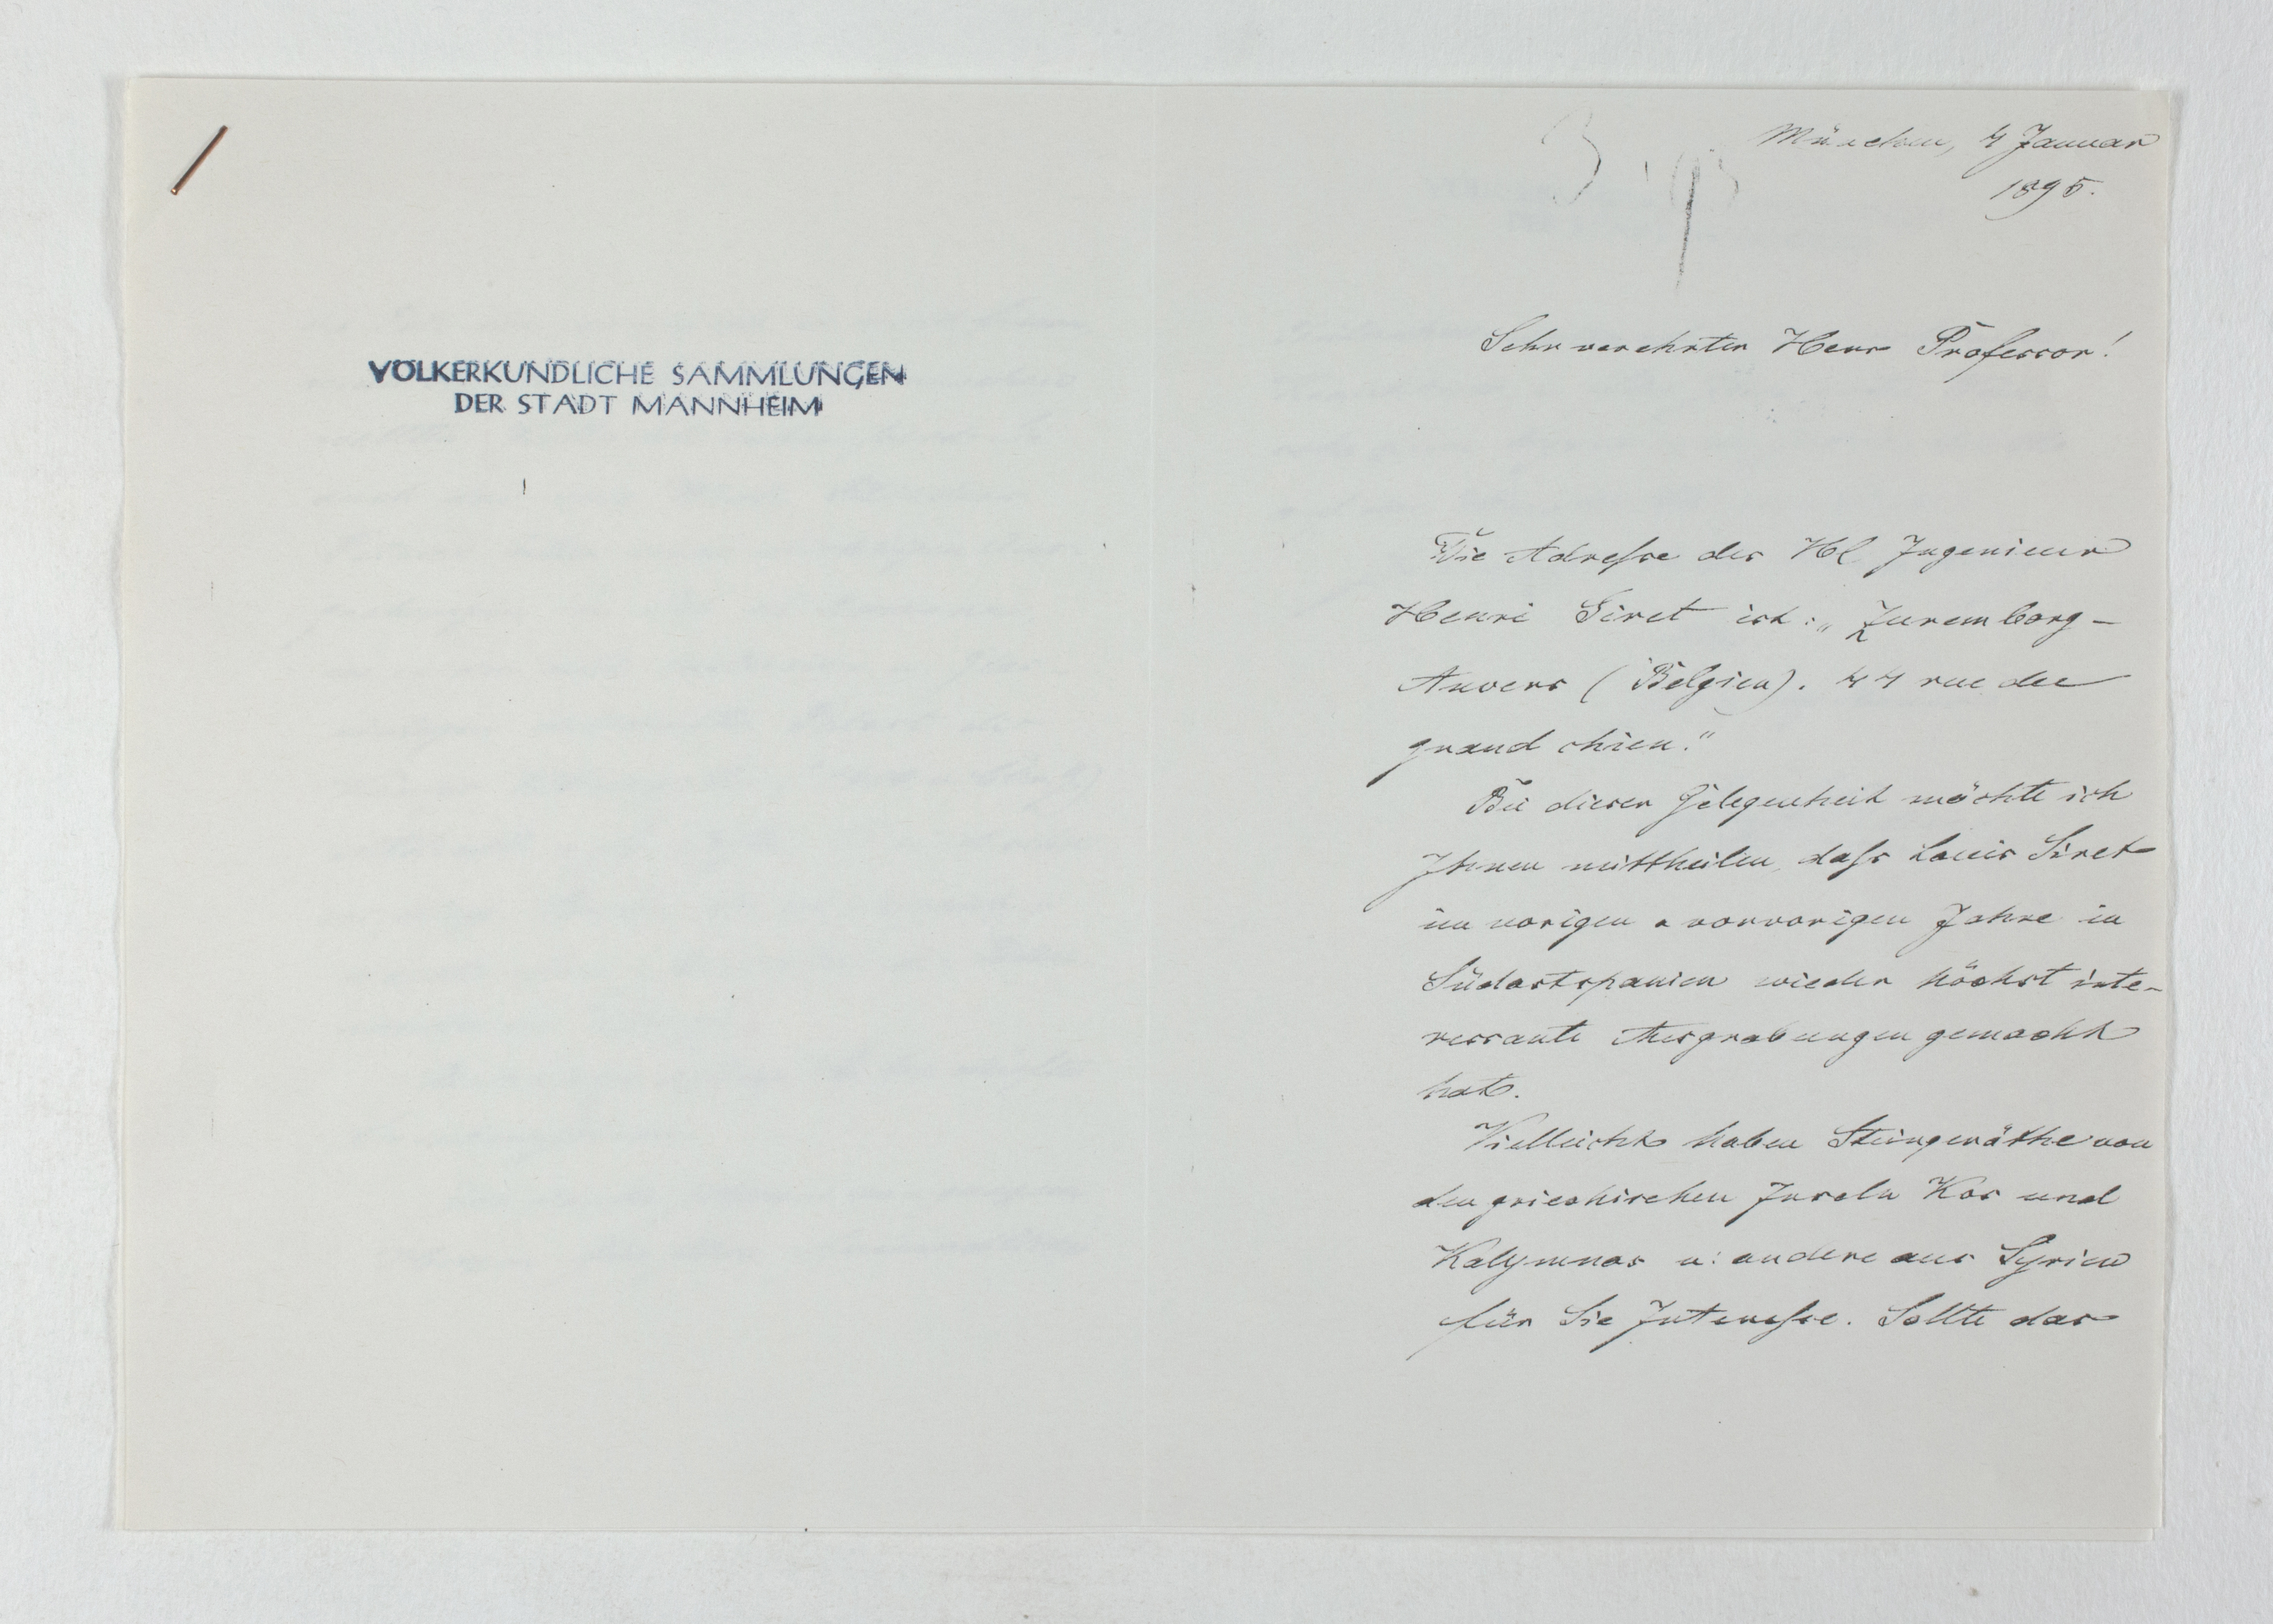 VÖLKERKUNDLICHE SAMMLUNGEN
DER STADT MANNHEIM
München, 4 Januar
1895.
Sehr verehrter Herr Professor!
Die Adresse des Hl Ingenieur
Henri Siret ist: „Zuremborg-
Anvers (Belgien). 44 rue du
grand chien."
Bei dieser Gelegenheit möchte ich
Ihnen mittheilen, dass Louis Siret
im vorigen u vorvorigen Jahre in
Südostspanien wieder höchst inte-
ressante Ausgrabungen gemacht
hat.
Vielleicht haben Steingeräthe von
den griechischen Inseln Kos und
Kalymnos u: andere aus Syrien
für Sie Interesse. Sollte das